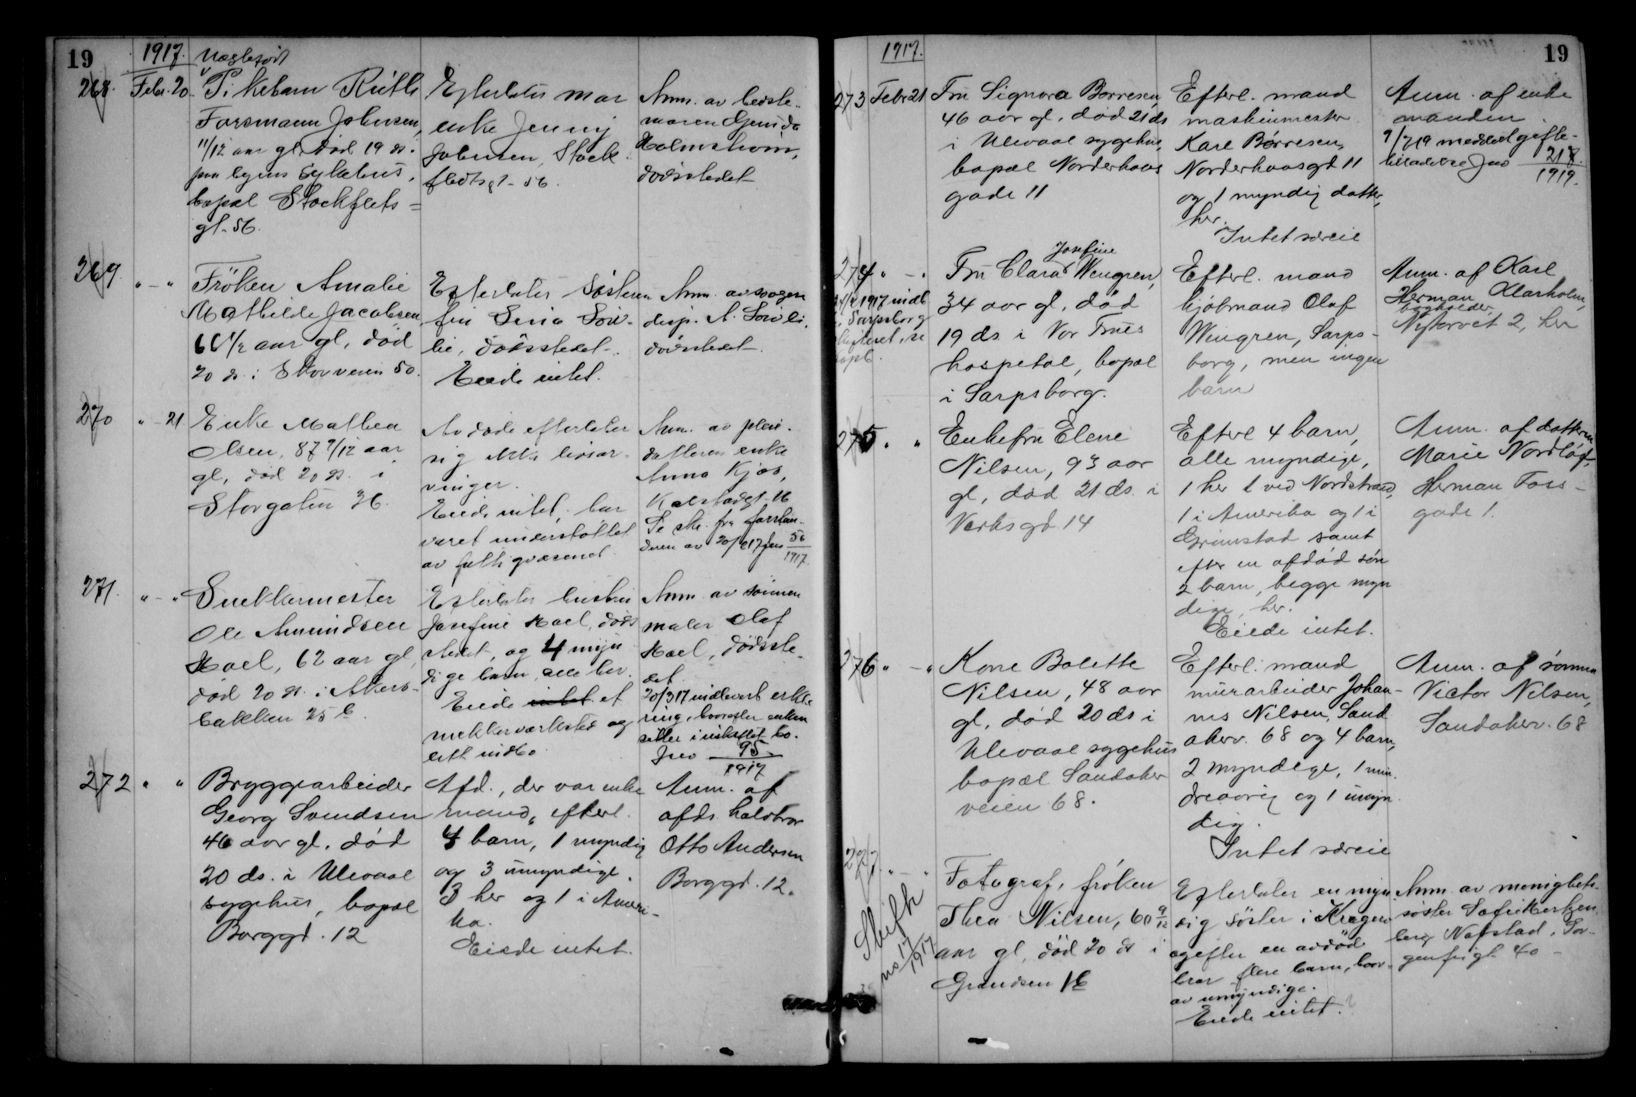 19
1917.
268. Febr. 20
Pikebarn Ruth
Forsmann Johnsen,
11/12 aar gl. død 19 ds.
paa byens sykehus,
bopæl Stockflets=
gt. 56.
Efterlater mor
enke Jenny
Johnsen, Stock-
fletsgt. 56.
Anm. av bedste-
moren
Holmstrøm,
dødsstedet
269. " - "
Fröken Amalie
Mathilde Jacobsen
aar gl, død
20 ds. i Storveien 50.
Efterlater søsteren
fru
dødsstedet.
Eiede intet.
Anm. av
disp. A.
dødsstedet
270 " - 21.
Enke Mathea
Olsen, 87 7/12 aar
gl, død 20 ds. i
Storgaten 36.
Avdøde efterlater
sig ikke livsar-
vinger.
Eiede intet, har
været understøttet
av fattigvæsenet
Anm. av pleie-
datteren enke
Anna Kjøs,
16
Se skr. fra forstan-
deren av 20/4 17 Jno 56/1917
271. " - "
Snekkermester
Ole Amundsen
Hoel, 62 aar gl,
død 20 ds. i Akers-
bakken 25 b.
Efterlater hustru
Josefine Hoel, døds
stedet, og 4 myn
dige barn, alle her.
Eiede intet et
snekkerverksted og
litt indbo
Anm. av sönnen
maler Olaf
Hoel, dødsste-
det.
20/3 17 indlevert erklæ
ring, hvorefter enken
sitter i uskiftet bo.
Jno 95/1917
272 " "
Bryggearbeider
Georg Svendsen
46 aar gl. død
20 ds. i Ulevaal
sygehus, bopæl
Borggt. 12
Afd., der var enke
mand, efterl.
4 barn, 1 myndig
og 3 umyndige.
3 her og 1 i Ameri-
ka.
Eiede intet.
Anm. af
afds. halvbror
Otto Andersen
Borggt. 12.
1917.
19
273 Febr 21
Fru Signora Børresen,
46 aar gl. død 21 ds
i Ulevaal sygehus,
bopæl Norderhovs
gade 11
Efterl. mand
maskinmester
Karl Børresen,
Norderhovsgt 11
og 1 myndig datter,
her.
Intet særeie
Anm. af enke
manden.
9/7 19 meddelt
Jno 218/1919.
274 " - "
1917 indb.
Sarpsborg
Josefine
Fru Clara Wengren,
34 aar gl, død
19 ds. i Vor Frues
hospital, bopæl
i Sarpsborg.
Efterl. mand
kjøbmand Olaf
Wengren, Sarps-
borg, men ingen
barn
Anm. af Karl
Herman Klarholm,
bogholder,
Nytorvet 2, her
275 " "
Enkefru Elene
Nilsen, 93 aar
gl, død 21 ds. i
Verksgt. 14
Efterl 4 barn,
alle myndige,
1 her 1 ved Nordstrand,
1 i Amerika og 1 i
Grimstad samt
efter en afdød søn
2 barn, begge myn
dige, her.
Eiede intet.
Anm. af datteren
Marie
Herman Foss-
gade 1.
276 " - "
Kone Bolette
Nilsen, 48 aar
gl, død 20 ds i
Ulevaal sygehus
bopæl Sandaker
veien 68.
Efterl. mand
murarbeider Johan-
nes Nilsen, Sand
akerv. 68 og 4 barn,
2 myndige, 1 min
dreaarig og 1 umyn
dig.
Intet særeie
Anm. af sønnen
Victor Nilsen,
Sandakerv. 68
277 " - "
Skifte
no 17/1917
Fotograf, fröken
Thea Nilsen, 60 9/12
aar gl, død 20 ds i
Grændsen 1 b
Efterlater en myn
dig söster i Kragerø
og efter en avdød
bror flere barn, hvor-
av umyndige.
Eiede intet.
Anm. av menighets-
söster
Nafstad, Sor-
genfrigt. 40 -